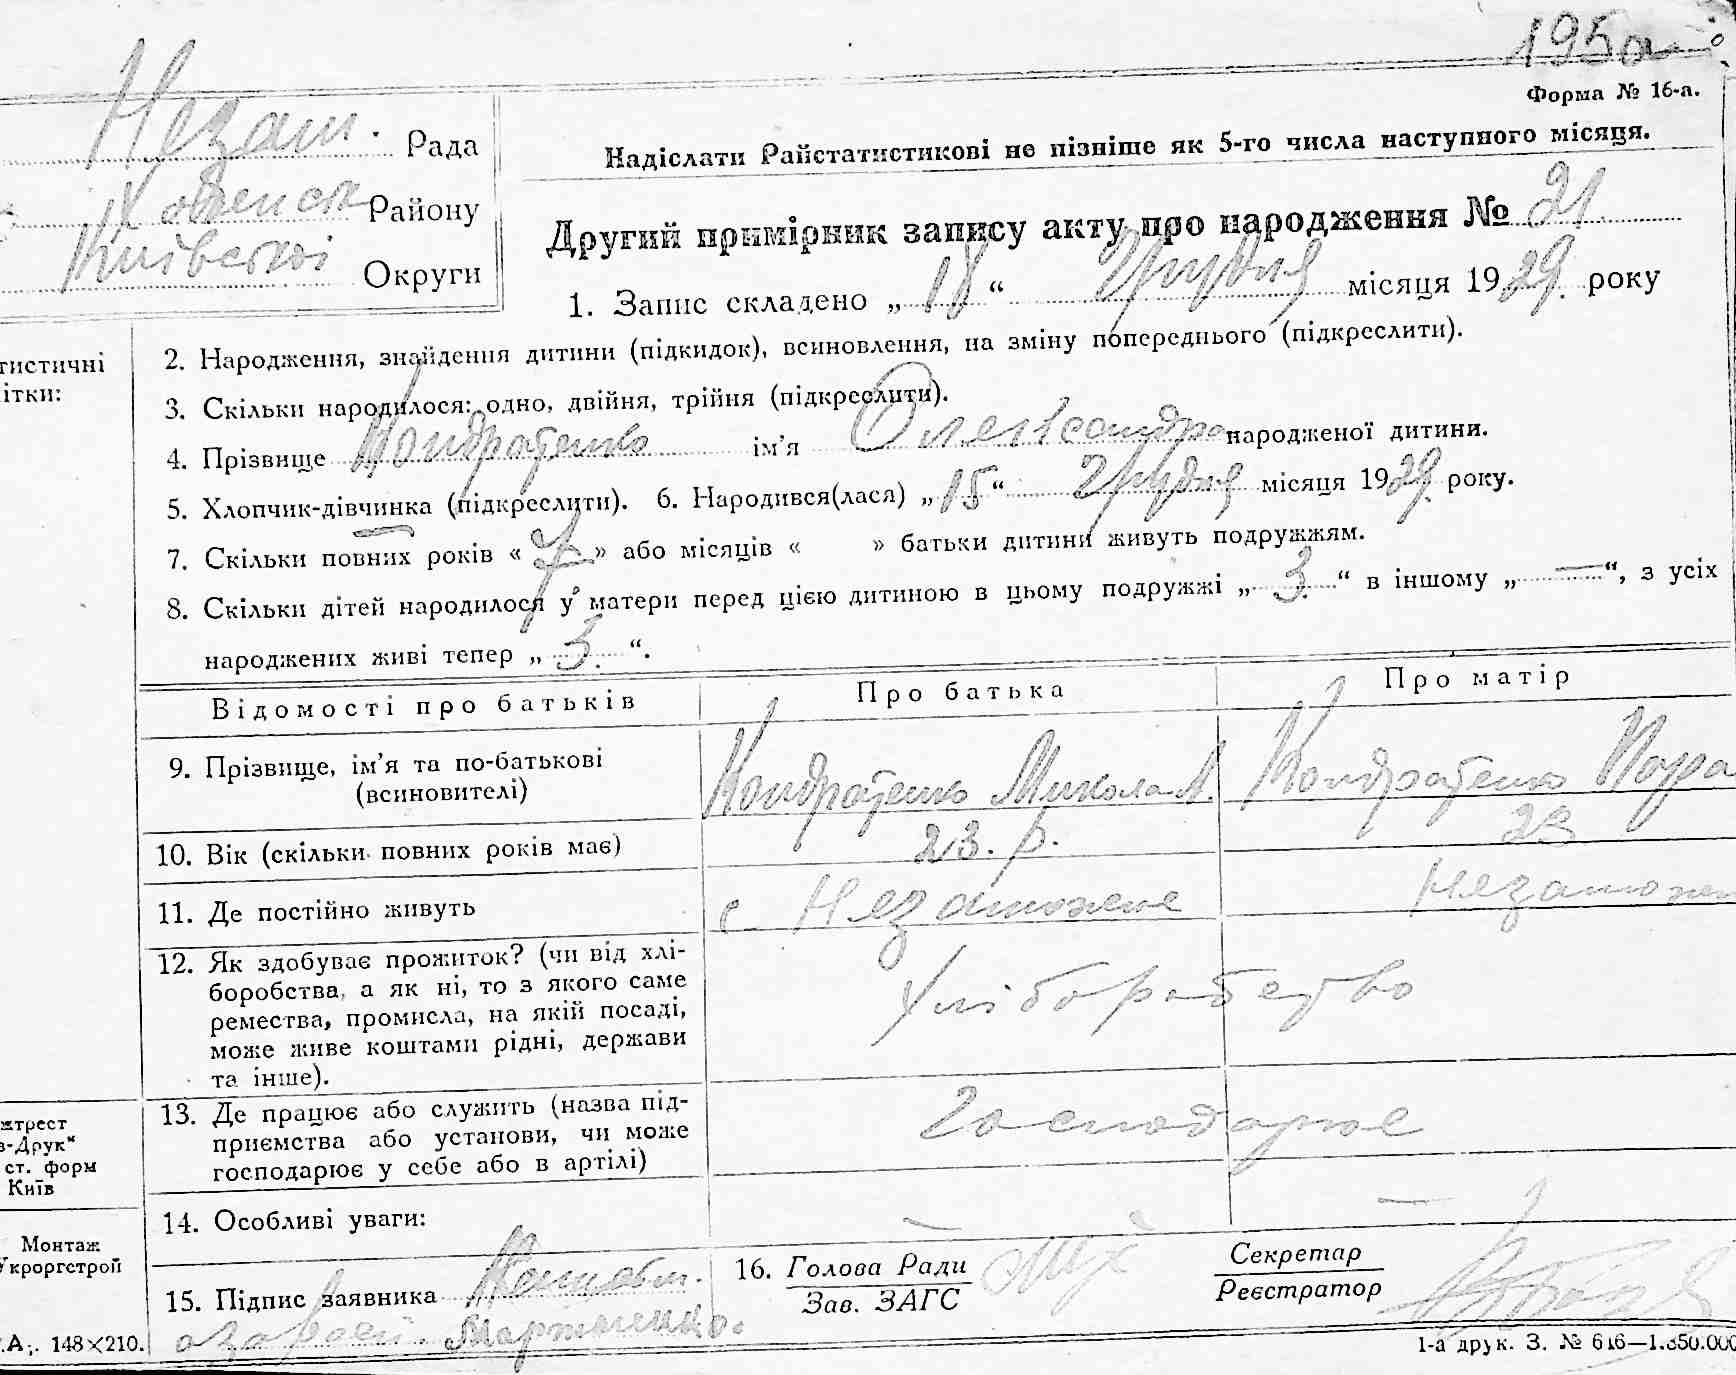 195
Форма № 16-а.
Незам. Рада
Району
Київської Округи
Надіслати Райстатистикові не пізніше як 5-го числа наступного місяця.
Другий примірник запису акту про народження № 21
1. Запис складено „18“ Грудня місяця 1929. року
тистичні
ітки:
2. Народження, знайдення дитини (підкидок), всиновлення, на зміну попереднього (підкреслити).
3. Скільки народилося: одно, двійня, трійня (підкреслити).
4. Прізвище Кондратенко ім’я Олександра народженої дитини.
5. Хлопчик-дівчинка (підкреслити). 6. Народився(лася) „15“ Грудня місяця 1929. року.
7. Скільки повних років « 7 » або місяців « » батьки дитини живуть подружжям.
8. Скільки дітей народилося у матери перед цією дитиною в цьому подружжі „ 3 “ в іншому „ — “, з усіх
народжених живі тепер „ 3. “.
Відомості про батьків Про батька Про матір
9. Прізвище, ім’я та по-батькові
(всиновителі)
Кондратенко Микола Кондратенко Пара
10. Вік (скільки повних років має) 23. р. 28
11. Де постійно живуть с Незаможне Незаможн
12. Як здобуває прожиток? (чи від хлі-
боробства, а як ні, то з якого саме
ремества, промисла, на якій посаді,
може живе коштами рідні, держави
та інше).
Хліборобство
13. Де працює або служить (назва під-
приємства або установи, чи може
господарює у себе або в артілі)
Господарює
14. Особливі уваги: — —
15. Підпис заявника
Мартиненко.
16. Голова Ради
Зав. ЗАГС
Секретар
Реєстратор
жтрест
з-Друк“
ст. форм
Київ
Монтаж
Укроргстрой
.А;. 148×210.
1-а друк. З. № 616—1.350.000